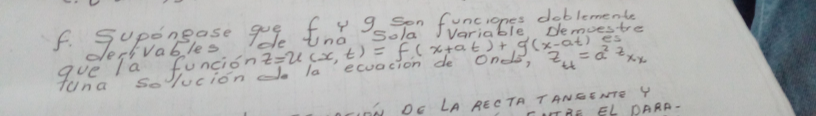 f. Supóngase que f y g son funciones doblemente
derivables de una sola variable Demuestre
que la función z=u(x,t) = f(x+at) + g(x-at) es
una solución de la ecuación de Onda, z_tt = a² z_xx
DE LA RECTA TANGENTE Y
EL PARA-